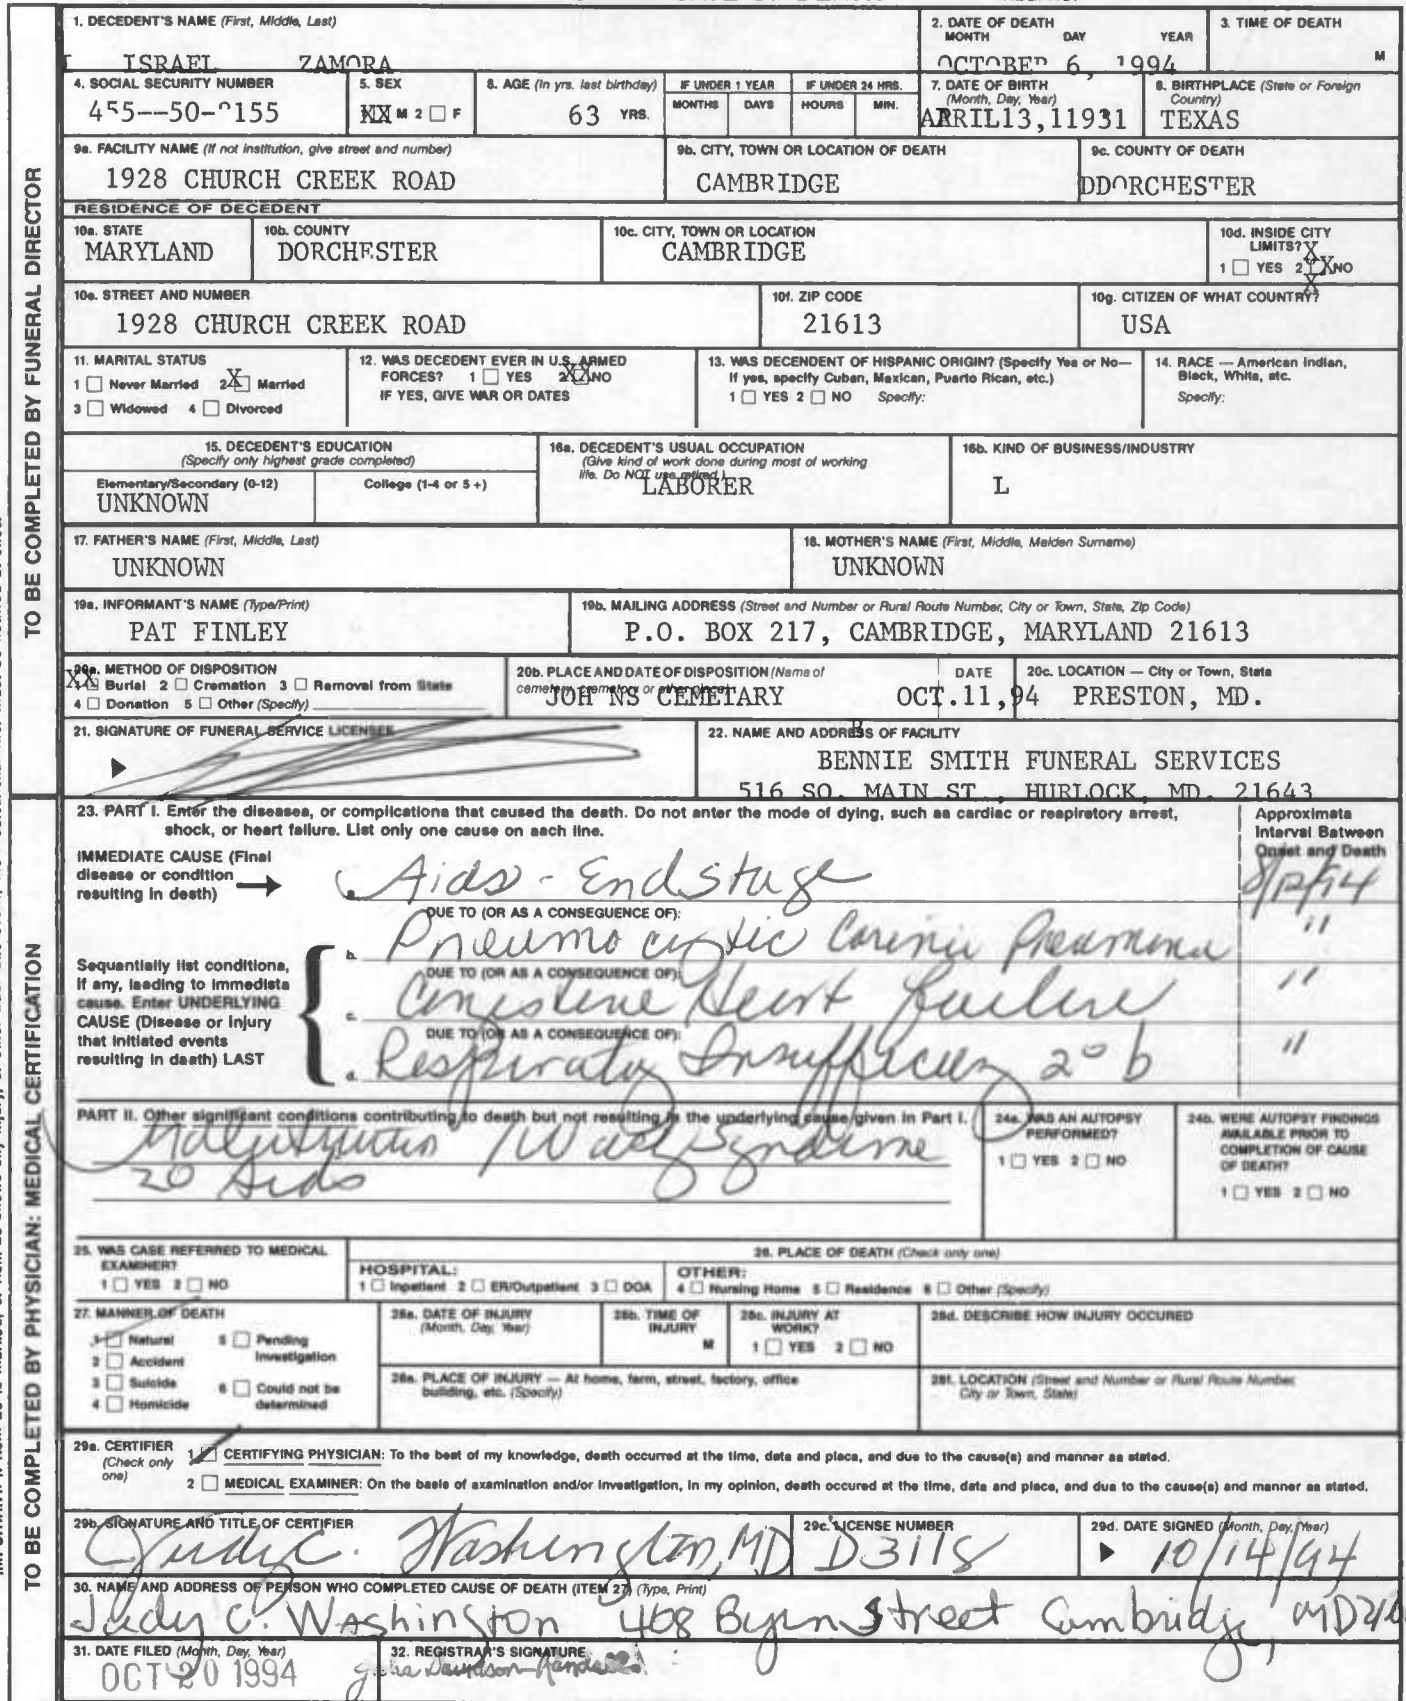 1. DECEDENT'S NAME (First, Middle, Last)
ISRAEL ZAMORA
2. DATE OF DEATH
MONTH DAY YEAR
OCTOBER 6, 1994
3. TIME OF DEATH
M
4. SOCIAL SECURITY NUMBER
455--50-0155
5. SEX
XX M 2 F
8. AGE (In yrs. last birthday)
63 YRS.
IF UNDER 1 YEAR
MONTHS DAYS
IF UNDER 24 HRS.
HOURS MIN.
7. DATE OF BIRTH
(Month, Day, Year)
APRIL13,11931
8. BIRTHPLACE (State or Foreign
Country)
TEXAS
9a. FACILITY NAME (If not institution, give street and number)
1928 CHURCH CREEK ROAD
9b. CITY, TOWN OR LOCATION OF DEATH
CAMBRIDGE
9c. COUNTY OF DEATH
DDORCHESTER
RESIDENCE OF DECEDENT
10a. STATE
MARYLAND
10b. COUNTY
DORCHESTER
10c. CITY, TOWN OR LOCATION
CAMBRIDGE
10d. INSIDE CITY
LIMITS? X
1 YES 2 X NO
X
10e. STREET AND NUMBER
1928 CHURCH CREEK ROAD
10f. ZIP CODE
21613
10g. CITIZEN OF WHAT COUNTRY?
USA
11. MARITAL STATUS
1 Never Married 2 X Married
3 Widowed 4 Divorced
12. WAS DECEDENT EVER IN U.S. ARMED
FORCES? 1 YES 2 XX NO
IF YES, GIVE WAR OR DATES
13. WAS DECENDENT OF HISPANIC ORIGIN? (Specify Yes or No—
If yes, specify Cuban, Mexican, Puerto Rican, etc.)
1 YES 2 NO Specify:
14. RACE — American Indian,
Black, White, etc.
Specify:
15. DECEDENT'S EDUCATION
(Specify only highest grade completed)
Elementary/Secondary (0-12) College (1-4 or 5+)
UNKNOWN
16a. DECEDENT'S USUAL OCCUPATION
(Give kind of work done during most of working
life. Do NOT use retired.)
LABORER
16b. KIND OF BUSINESS/INDUSTRY
L
17. FATHER'S NAME (First, Middle, Last)
UNKNOWN
18. MOTHER'S NAME (First, Middle, Maiden Surname)
UNKNOWN
19a. INFORMANT'S NAME (Type/Print)
PAT FINLEY
19b. MAILING ADDRESS (Street and Number or Rural Route Number, City or Town, State, Zip Code)
P.O. BOX 217, CAMBRIDGE, MARYLAND 21613
20a. METHOD OF DISPOSITION
XX Burial 2 Cremation 3 Removal from State
4 Donation 5 Other (Specify)
20b. PLACE AND DATE OF DISPOSITION (Name of
cemetery, crematory or other place)
JOH NS CEMETARY
DATE
OCT.11,94
20c. LOCATION — City or Town, State
PRESTON, MD.
21. SIGNATURE OF FUNERAL SERVICE LICENSEE
22. NAME AND ADDRESS OF FACILITY
BENNIE SMITH FUNERAL SERVICES
516 SO. MAIN ST., HURLOCK, MD. 21643
TO BE COMPLETED BY FUNERAL DIRECTOR
23. PART I. Enter the diseases, or complications that caused the death. Do not enter the mode of dying, such as cardiac or respiratory arrest,
shock, or heart failure. List only one cause on each line.
Approximate
Interval Between
Onset and Death
IMMEDIATE CAUSE (Final
disease or condition
resulting in death)
a. Aids - Endstage 8/12/94
DUE TO (OR AS A CONSEQUENCE OF):
b. Pneumocystic Carinii Pneumonia "
DUE TO (OR AS A CONSEQUENCE OF):
c. Congestive Heart failure "
DUE TO (OR AS A CONSEQUENCE OF):
d. Respiratory Insufficiency 2° b "
Sequentially list conditions,
if any, leading to immediate
cause. Enter UNDERLYING
CAUSE (Disease or Injury
that initiated events
resulting in death) LAST
PART II. Other significant conditions contributing to death but not resulting in the underlying cause given in Part I.
Malnutrition / Syndrome
2° Aids
24a. WAS AN AUTOPSY
PERFORMED?
1 YES 2 NO
24b. WERE AUTOPSY FINDINGS
AVAILABLE PRIOR TO
COMPLETION OF CAUSE
OF DEATH?
1 YES 2 NO
25. WAS CASE REFERRED TO MEDICAL
EXAMINER?
1 YES 2 NO
26. PLACE OF DEATH (Check only one)
HOSPITAL:
1 Inpatient 2 ER/Outpatient 3 DOA
OTHER:
4 Nursing Home 5 Residence 6 Other (Specify)
27. MANNER OF DEATH
1 Natural 5 Pending
Investigation
2 Accident
3 Suicide 6 Could not be
determined
4 Homicide
28a. DATE OF INJURY
(Month, Day, Year)
28b. TIME OF
INJURY
M
28c. INJURY AT
WORK?
1 YES 2 NO
28d. DESCRIBE HOW INJURY OCCURED
28e. PLACE OF INJURY — At home, farm, street, factory, office
building, etc. (Specify)
28f. LOCATION (Street and Number or Rural Route Number,
City or Town, State)
29a. CERTIFIER
(Check only
one)
1 CERTIFYING PHYSICIAN: To the best of my knowledge, death occurred at the time, date and place, and due to the cause(s) and manner as stated.
2 MEDICAL EXAMINER: On the basis of examination and/or investigation, in my opinion, death occured at the time, date and place, and due to the cause(s) and manner as stated.
29b. SIGNATURE AND TITLE OF CERTIFIER
Judy C. Washington, MD
29c. LICENSE NUMBER
29d. DATE SIGNED (Month, Day, Year)
10/14/94
30. NAME AND ADDRESS OF PERSON WHO COMPLETED CAUSE OF DEATH (ITEM 27) (Type, Print)
Judy C. Washington 408 Byrn Street Cambridge, MD
31. DATE FILED (Month, Day, Year)
OCT 20 1994
32. REGISTRAR'S SIGNATURE
TO BE COMPLETED BY PHYSICIAN: MEDICAL CERTIFICATION